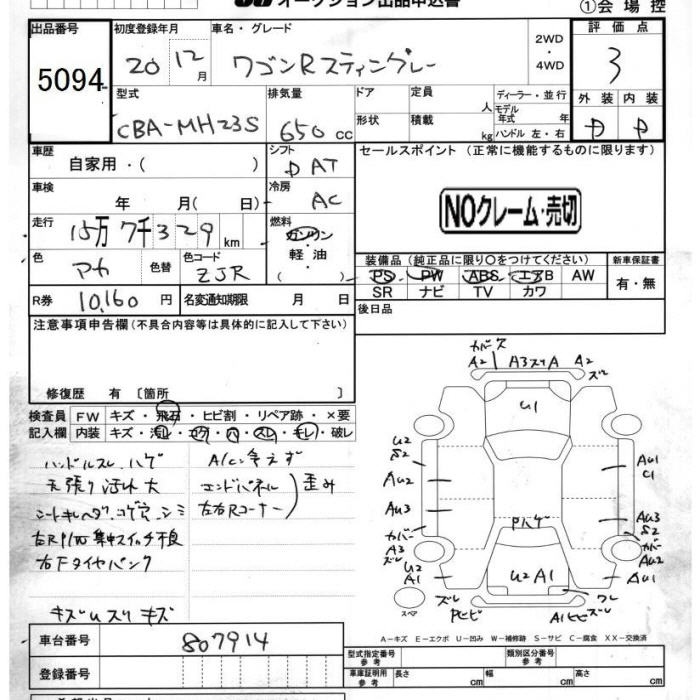 オークション出品申込書
①会場控
出品番号 初度登録年月 車名・グレード 2WD・4WD 評価点
5094 20 12月 ワゴンRスティングレー 3
型式 排気量 ドア 定員 人 ディーラー・並行 外装 内装
CBA-MH23S 650cc 形状 積載 kg モデル年式 年 ハンドル 左・右 D D
車歴 自家用・( ) シフト DAT セールスポイント (正常に機能するものに限ります)
車検 年 月( 日) 冷房 AC
NOクレーム・売切
走行 15万7千329km 燃料 ガソリン
軽油
( )
色 アカ 色替 色コード ZJR
装備品(純正品に限り○をつけてください) 新車保証書
PS PW ABS エアB AW 有・無
SR ナビ TV カワ
R券 10,160円 名変通知期限 月 日
後日品
注意事項申告欄(不具合内容等は具体的に記入して下さい)
修復歴 有 〔箇所 〕
検査員 FW キズ・飛石・ヒビ割・リペア跡・×要
記入欄 内装 キズ・汚レ・コゲ・ハ・スレ・キレ・破レ
ハンドルスレ、ハゲ A/Cキえず
天張り汚レ大 エンドパネル 歪み
左右Rコーナー
右RP/W集中スイッチ不良
右Fタイヤパンク
キズUズリキズ
カバーズ
A2 A3スリA A2
ズレ
U1
U2
S2
AU2
AU3
カバー
A3
ズレ
U2
A1
AU1
C1
AU3
S2
カバー
AU2
ズレ
AU1
Pハゲ
U2A1
ワレ
ズレ
Pヒビ
A1ヒビズレ
スペア
A-キズ E-エクボ U-凹み W-補修跡 S-サビ C-腐食 XX-交換済
車台番号 807914
型式指定番号 参考 類別区分番号 参考
登録番号
車庫証明用 参考 長さ cm 幅 cm 高さ cm